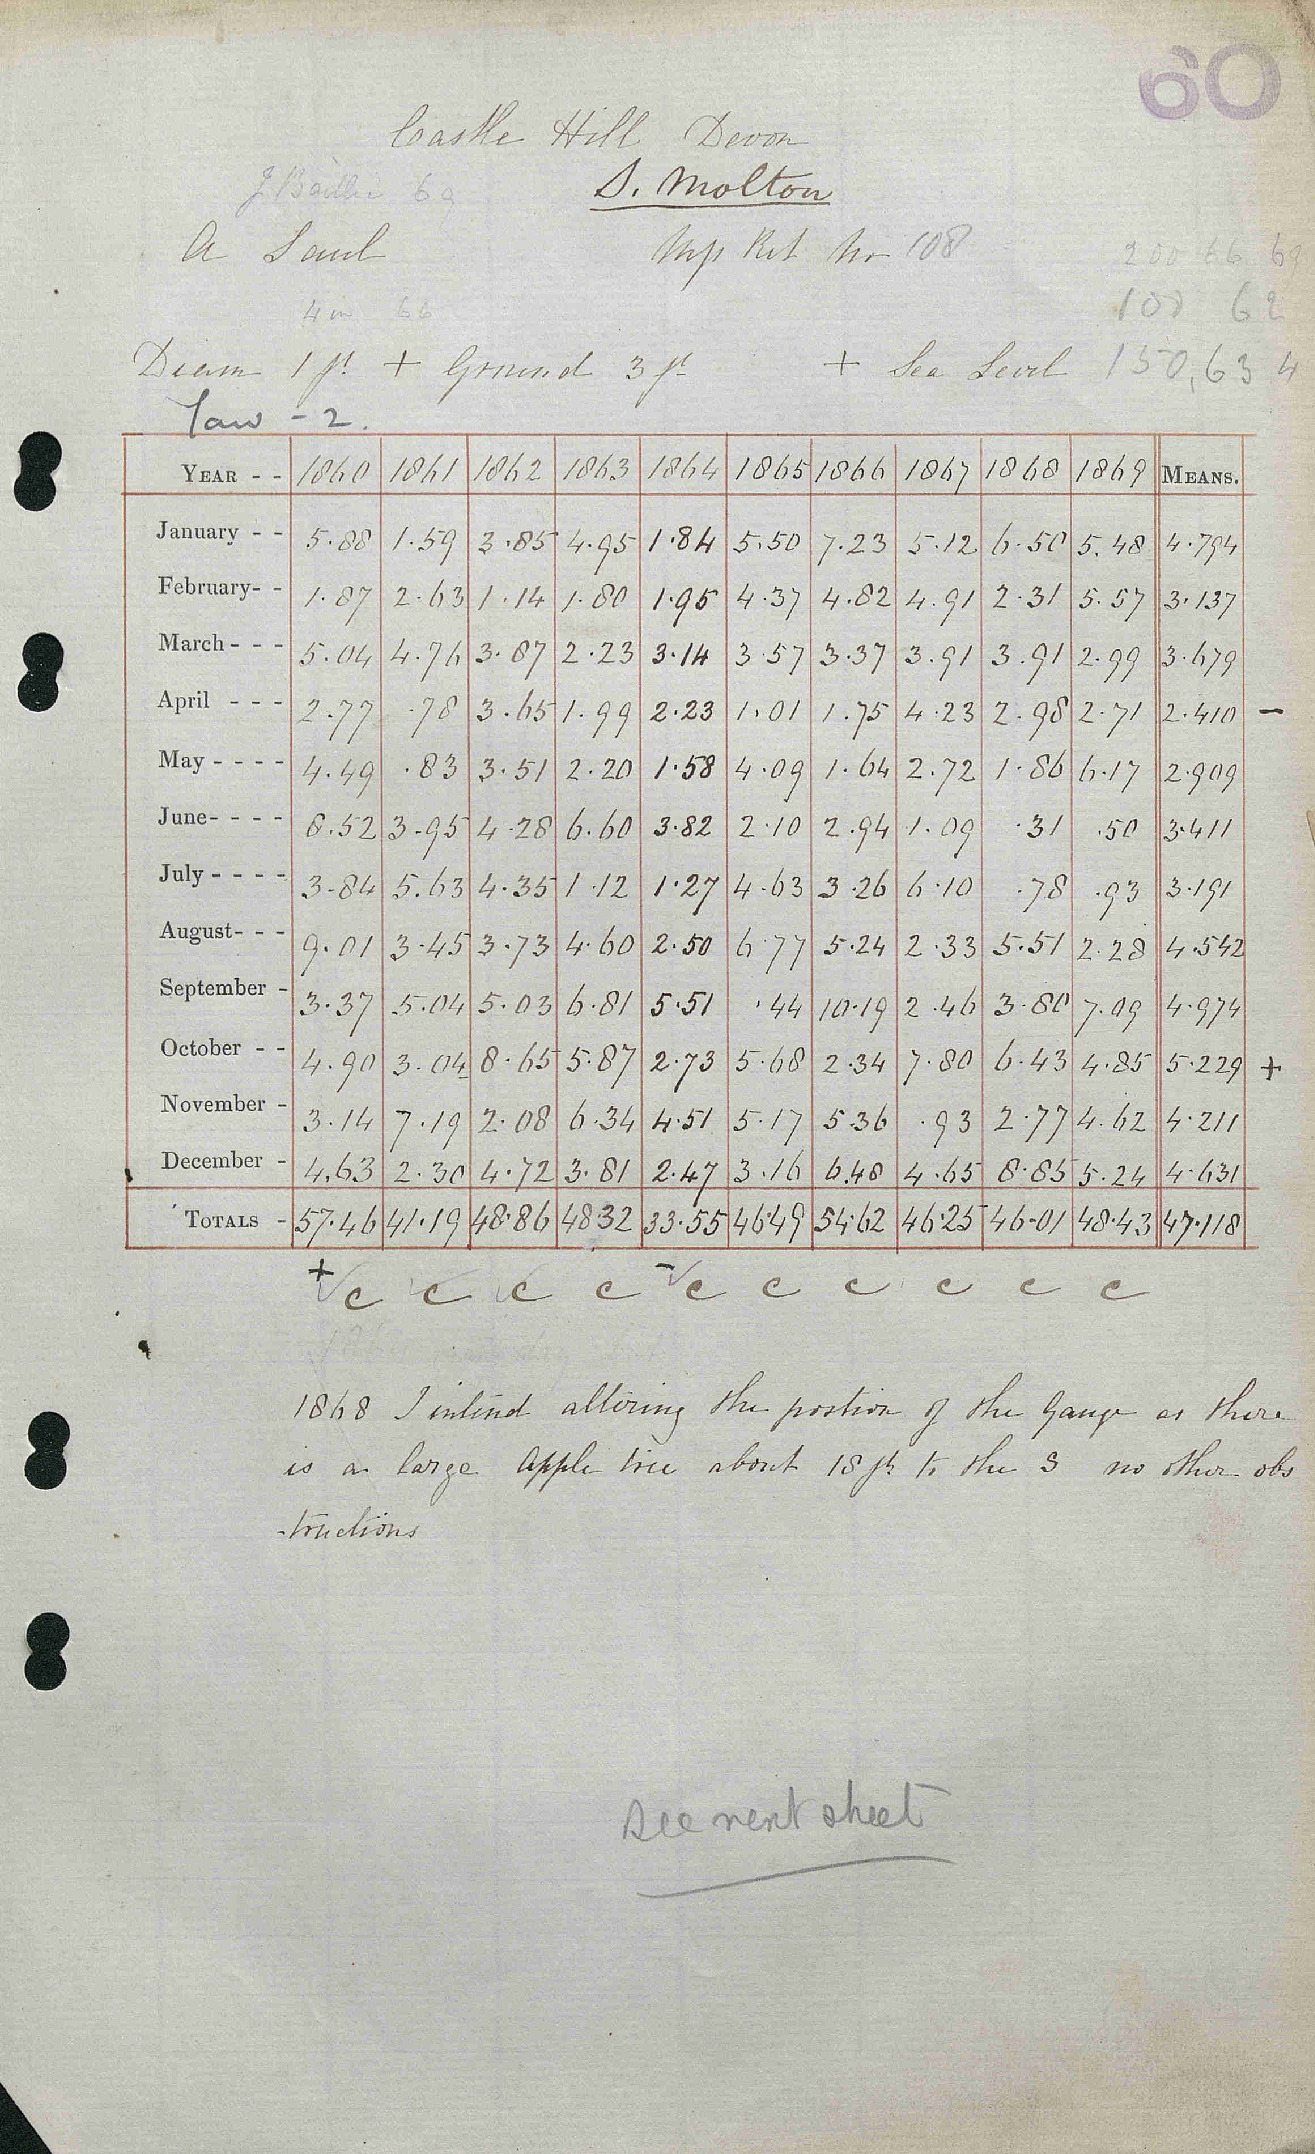 60
Castle Hill Devon
S. Molton
J Baillie 69
A Saul Mp Ret No 108
200 66 69
4 in 66
108 62
Diam 1 ft + Ground 3 ft + Sea Level 150, 63 4
Taw - 2.
YEAR - - 1860 1861 1862 1863 1864 1865 1866 1867 1868 1869 MEANS.
January - - 5.88 1.59 3.85 4.95 1.84 5.50 7.23 5.12 6.50 5.48 4.794
February- - 1.87 2.63 1.14 1.80 1.95 4.37 4.82 4.91 2.31 5.57 3.137
March - - - 5.04 4.76 3.87 2.23 3.14 3.57 3.37 3.91 3.91 2.99 3.679
April - - - 2.77 .78 3.65 1.99 2.23 1.01 1.75 4.23 2.98 2.71 2.410 -
May - - - - 4.49 .83 3.51 2.20 1.58 4.09 1.64 2.72 1.86 6.17 2.909
June- - - - 8.52 3.95 4.28 6.60 3.82 2.10 2.94 1.09 .31 .50 3.411
July - - - - 3.84 5.63 4.35 1.12 1.27 4.63 3.26 6.10 .78 .93 3.191
August- - - 9.01 3.45 3.73 4.60 2.50 6.77 5.24 2.33 5.51 2.28 4.542
September - 3.37 5.04 5.03 6.81 5.51 .44 10.19 2.46 3.80 7.09 4.974
October - - 4.90 3.04 8.65 5.87 2.73 5.68 2.34 7.80 6.43 4.85 5.229 +
November - 3.14 7.19 2.08 6.34 4.51 5.17 5.36 .93 2.77 4.62 4.211
December - 4.63 2.30 4.72 3.81 2.47 3.16 6.48 4.65 8.85 5.24 4.631
TOTALS - 57.46 41.19 48.86 48.32 33.55 46.49 54.62 46.25 46.01 48.43 47.118
+ c c c c - c c c c c c
1868 I intend altering the postion of the Gauge as there
is a large Apple tree about 18 ft to the S no other obs
-tructions
See next sheet